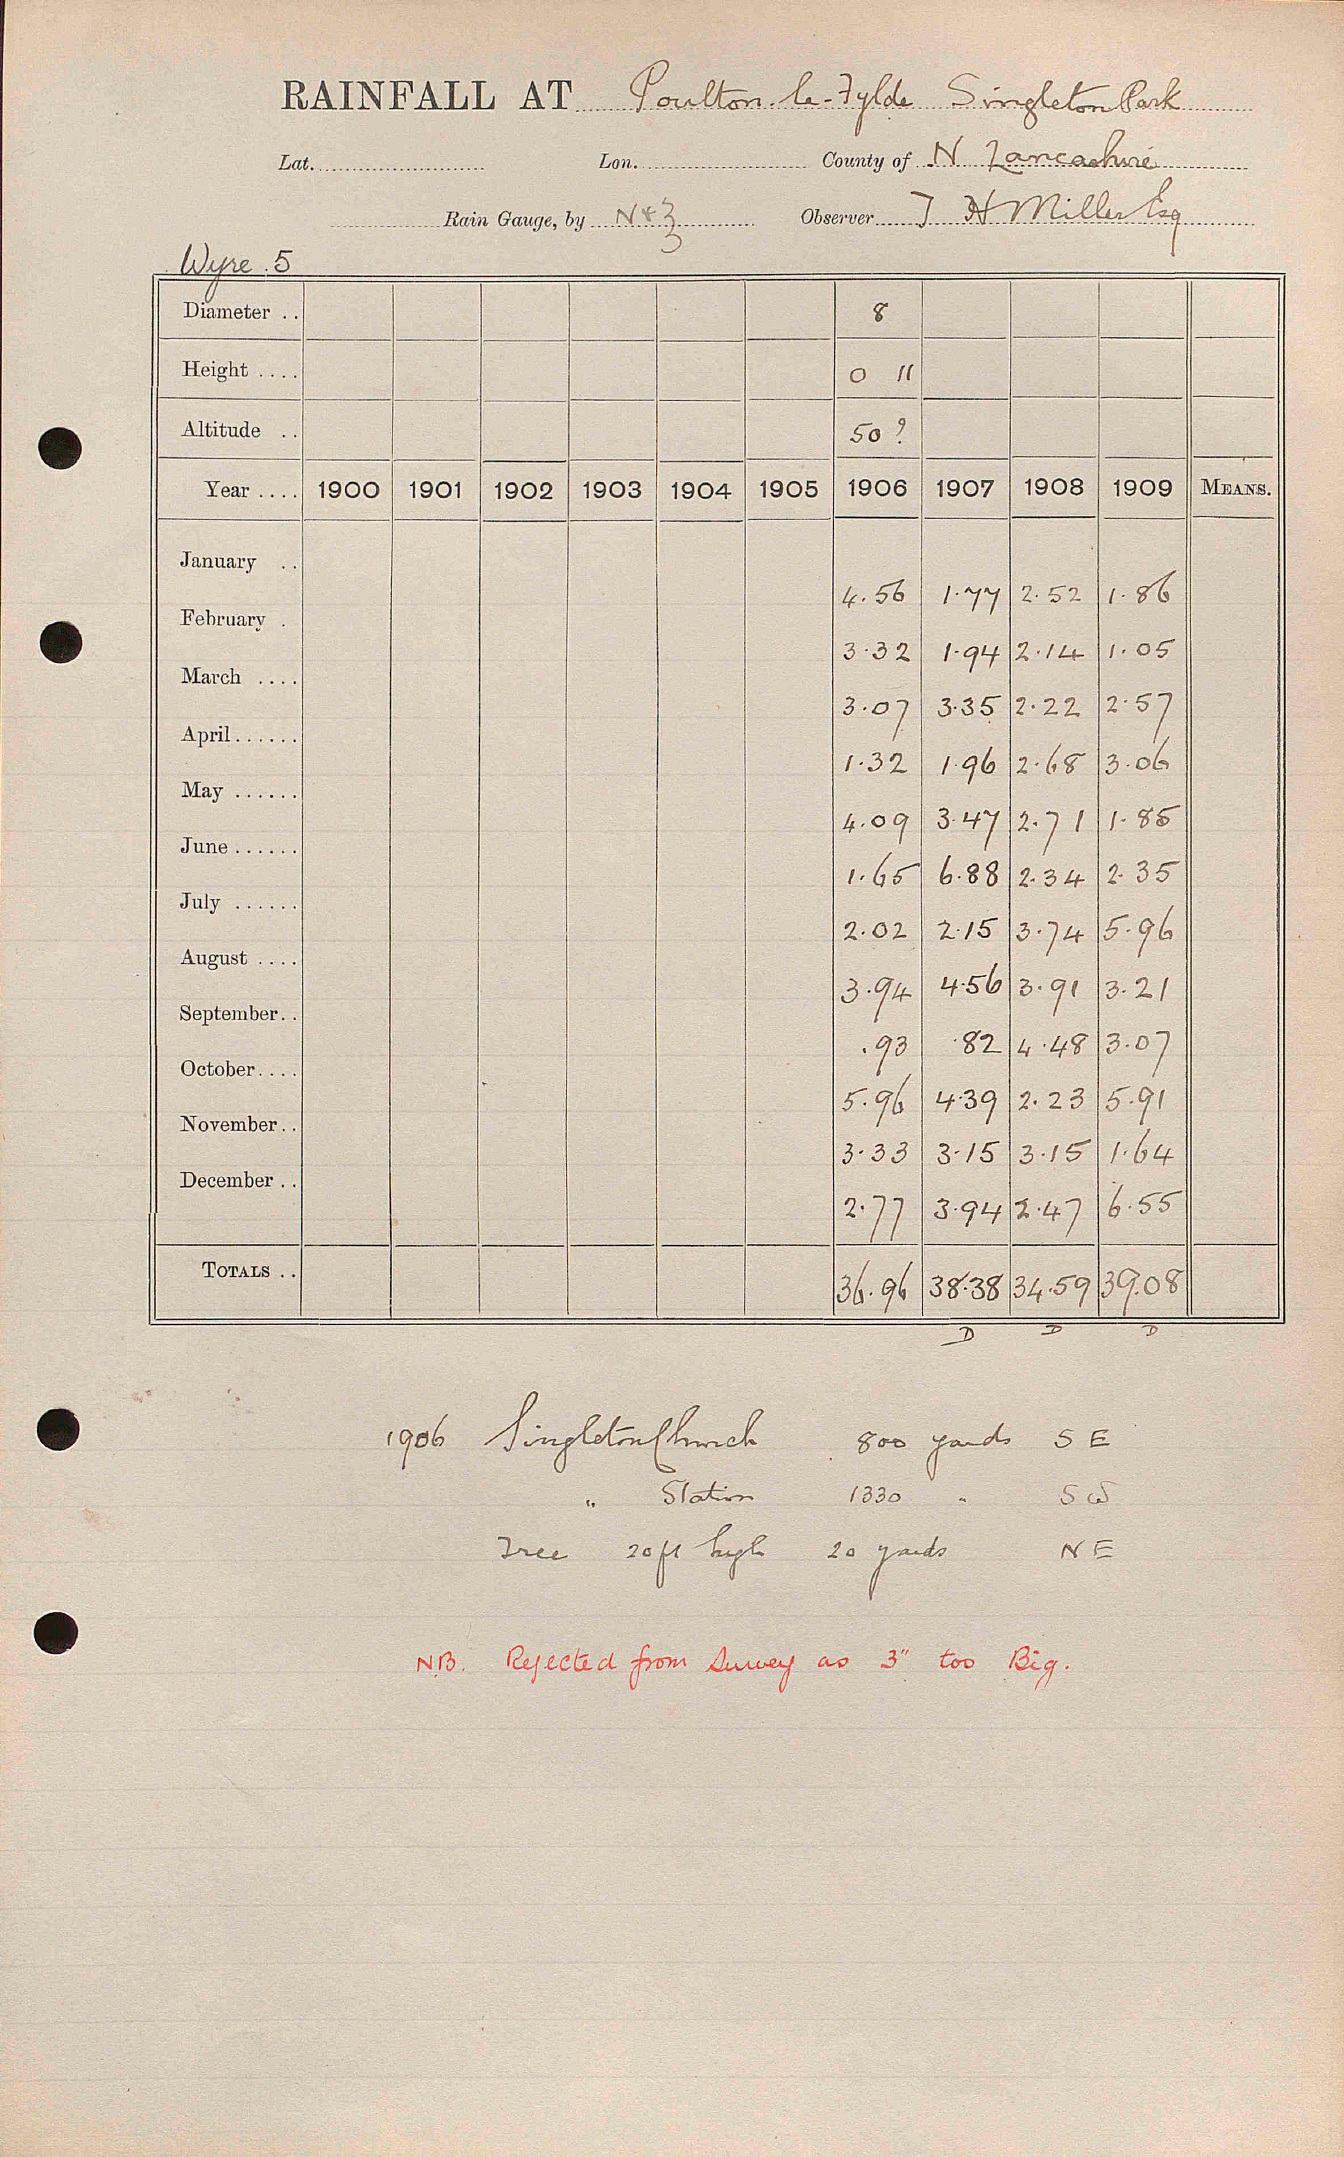 RAINFALL AT Poulton-le-Fylde Singleton Park
Lat. Lon. County of N Lancashire
Rain Gauge, by N & Z Observer T H Miller Esq
Wyre 5
Diameter .. 8
Height .... 0 11
Altitude .. 50 ?
Year .... 1900 1901 1902 1903 1904 1905 1906 1907 1908 1909 MEANS.
January .. 4.56 1.77 2.52 1.86
February . 3.32 1.94 2.14 1.05
March .... 3.07 3.35 2.22 2.57
April...... 1.32 1.96 2.68 3.06
May ...... 4.09 3.47 2.71 1.85
June ...... 1.65 6.88 2.34 2.35
July ...... 2.02 2.15 3.74 5.96
August .... 3.94 4.56 3.91 3.21
September.. .93 .82 4.48 3.07
October.... 5.96 4.39 2.23 5.91
November.. 3.33 3.15 3.15 1.64
December .. 2.77 3.94 2.47 6.55
TOTALS .. 36.96 38.38 34.59 39.08
D D D
1906 Singleton Church 800 yards S E
" Station 1330 " S W
Tree 20 ft high 20 yards N E
NB. Rejected from Survey as 3" too Big.